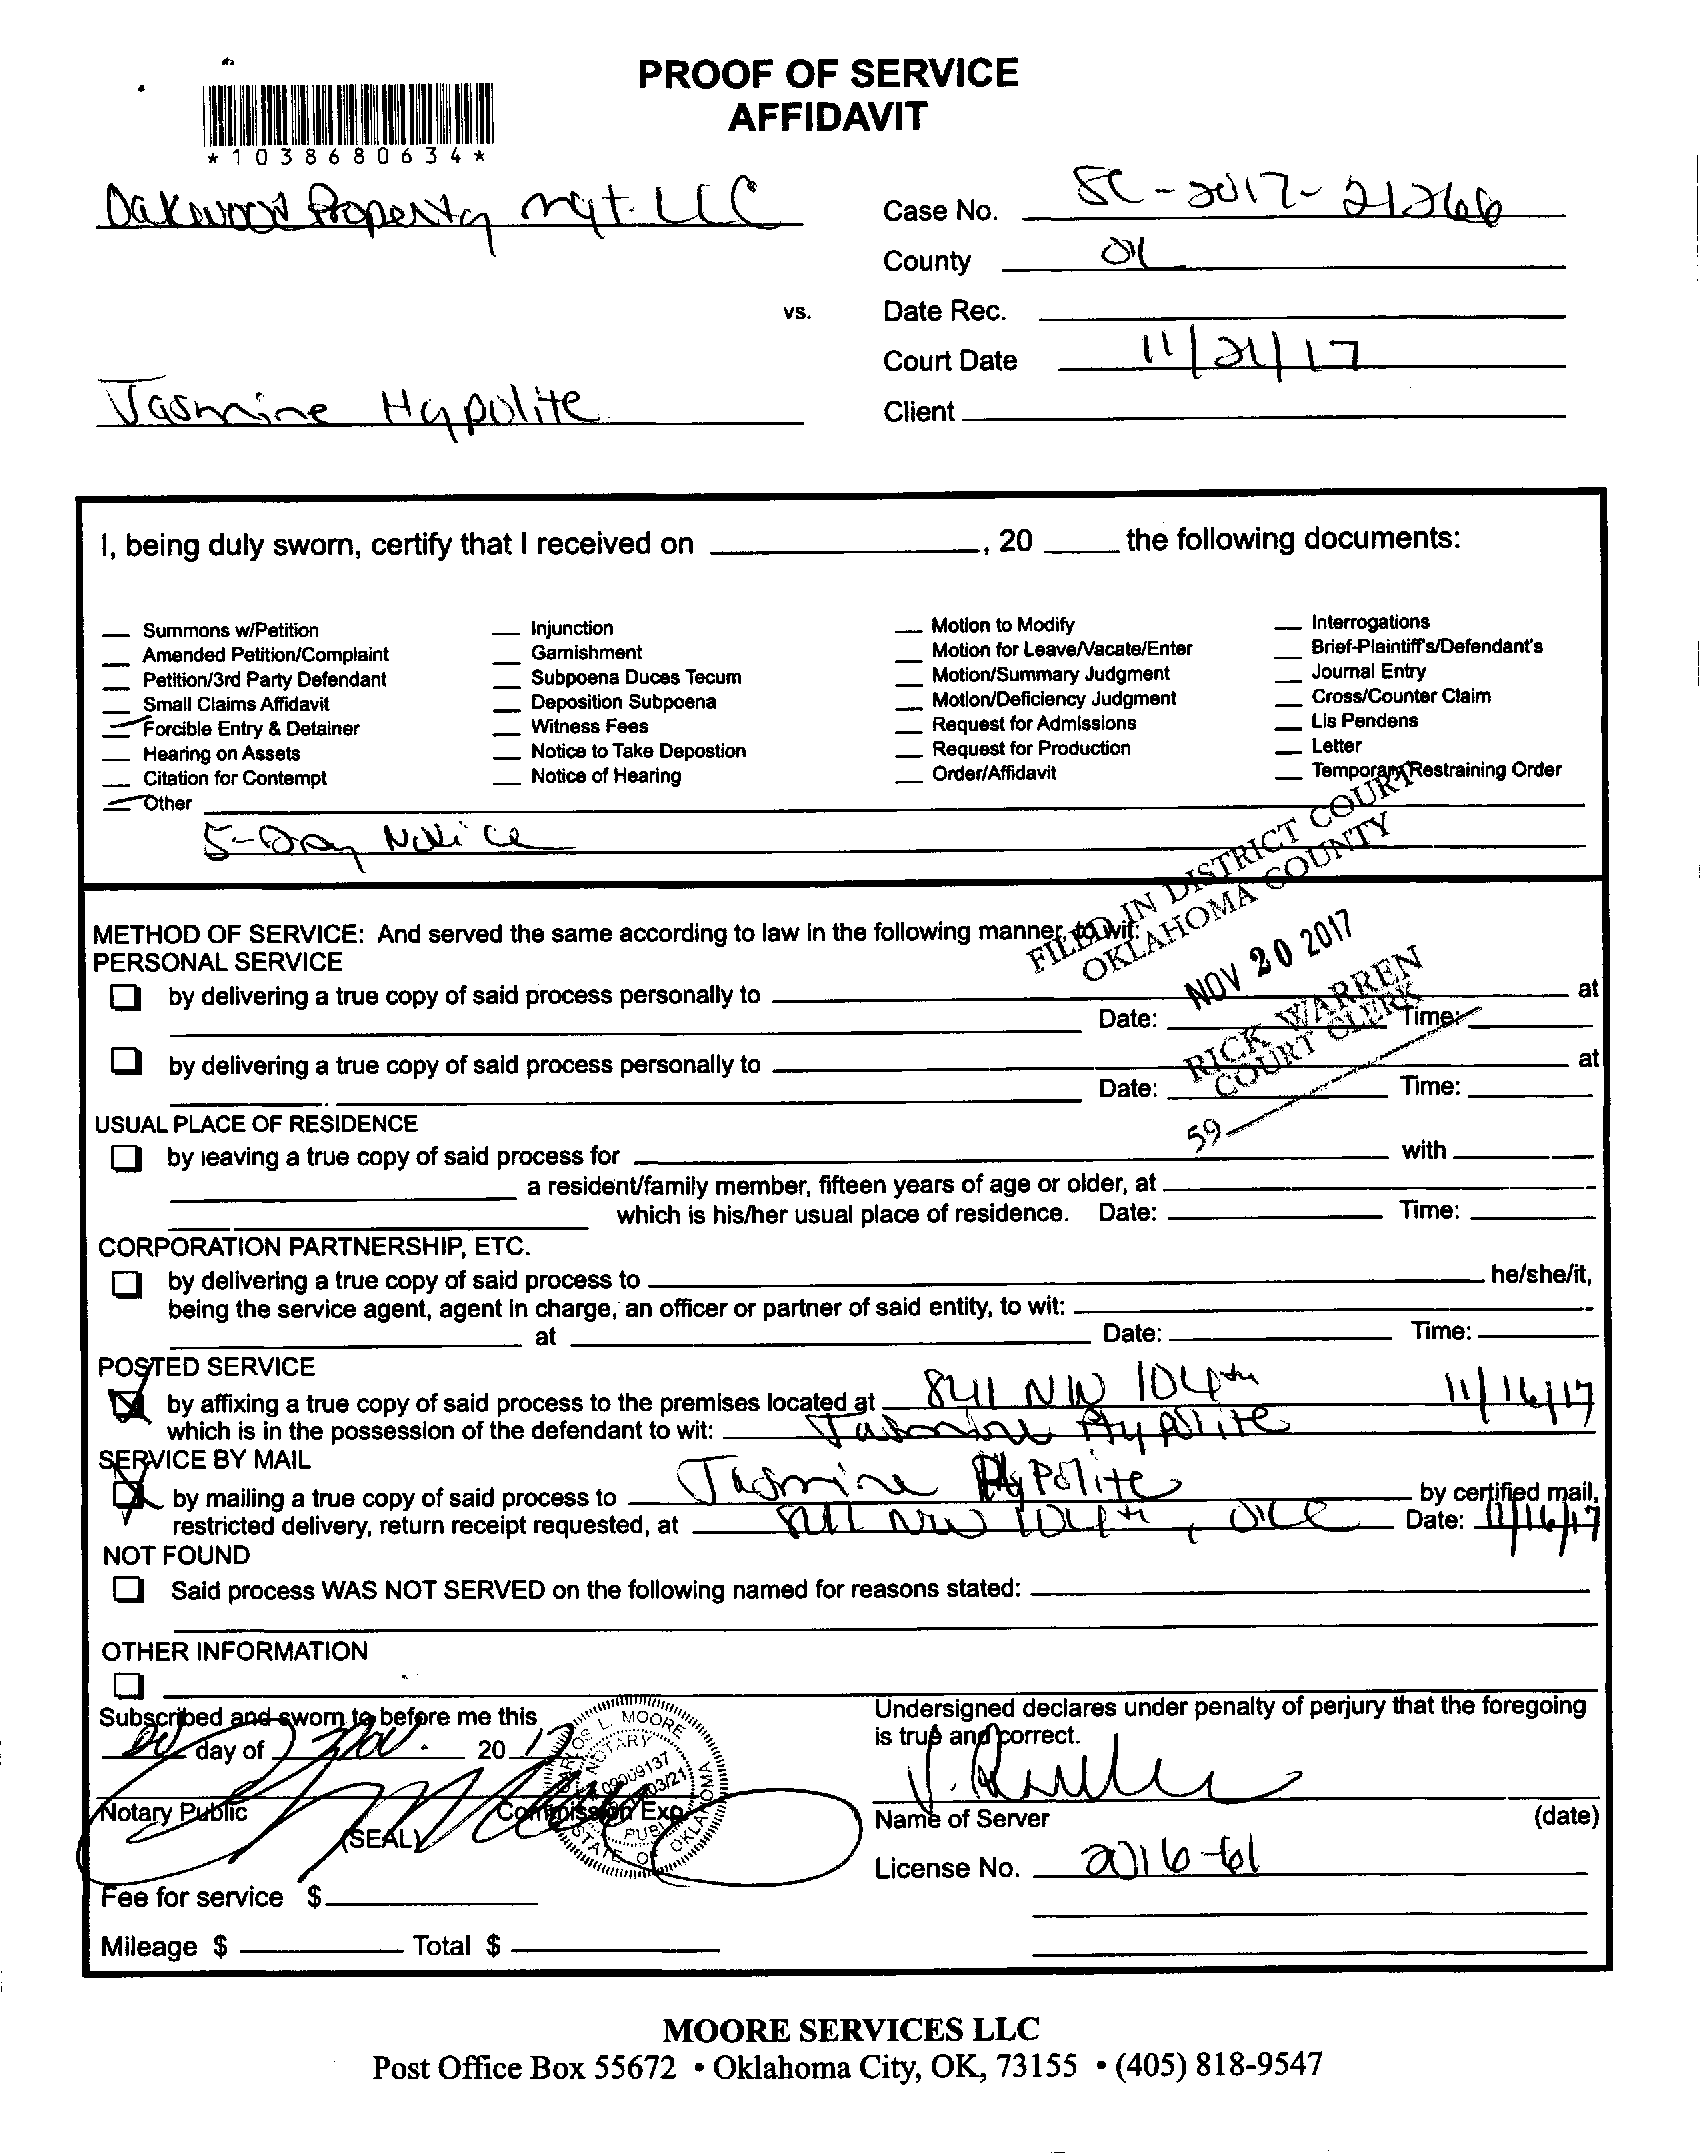 PROOF OF SERVICE
AFFIDAVIT
*1038680634*
Oakwood Property mgt. LLC
Case No. SC-2017-21266
County OK
vs.
Date Rec.
Court Date 11/21/17
Jasmine Hypolite
Client
I, being duly sworn, certify that I received on , 20 the following documents:
Summons w/Petition
Amended Petition/Complaint
Petition/3rd Party Defendant
Small Claims Affidavit
Forcible Entry & Detainer
Hearing on Assets
Citation for Contempt
Other
Injunction
Garnishment
Subpoena Duces Tecum
Deposition Subpoena
Witness Fees
Notice to Take Depostion
Notice of Hearing
Motion to Modify
Motion for Leave/Vacate/Enter
Motion/Summary Judgment
Motion/Deficiency Judgment
Request for Admissions
Request for Production
Order/Affidavit
Interrogations
Brief-Plaintiff's/Defendant's
Journal Entry
Cross/Counter Claim
Lis Pendens
Letter
Temporary Restraining Order
5-Day Notice
FILED IN DISTRICT COURT
OKLAHOMA COUNTY
NOV 20 2017
RICK WARREN
COURT CLERK
59
METHOD OF SERVICE: And served the same according to law in the following manner, to wit:
PERSONAL SERVICE
by delivering a true copy of said process personally to at
Date: Time:
by delivering a true copy of said process personally to at
Date: Time:
USUAL PLACE OF RESIDENCE
by leaving a true copy of said process for with
a resident/family member, fifteen years of age or older, at
which is his/her usual place of residence. Date: Time:
CORPORATION PARTNERSHIP, ETC.
by delivering a true copy of said process to he/she/it,
being the service agent, agent in charge, an officer or partner of said entity, to wit:
at Date: Time:
POSTED SERVICE
by affixing a true copy of said process to the premises located at 841 NW 104th 11/16/17
which is in the possession of the defendant to wit: Jasmine Hypolite
SERVICE BY MAIL
by mailing a true copy of said process to Jasmine Hypolite by certified mail,
restricted delivery, return receipt requested, at 841 NW 104th, OKC Date: 11/16/17
NOT FOUND
Said process WAS NOT SERVED on the following named for reasons stated:
OTHER INFORMATION
Subscribed and sworn to before me this
day of Nov. 2017
Notary Public Commission Exp.
(SEAL)
L. MOORE
NOTARY
PUBLIC
STATE OF OKLAHOMA
Fee for service $
Mileage $ Total $
Undersigned declares under penalty of perjury that the foregoing
is true and correct.
Name of Server (date)
License No. 2016-61
MOORE SERVICES LLC
Post Office Box 55672 • Oklahoma City, OK, 73155 • (405) 818-9547